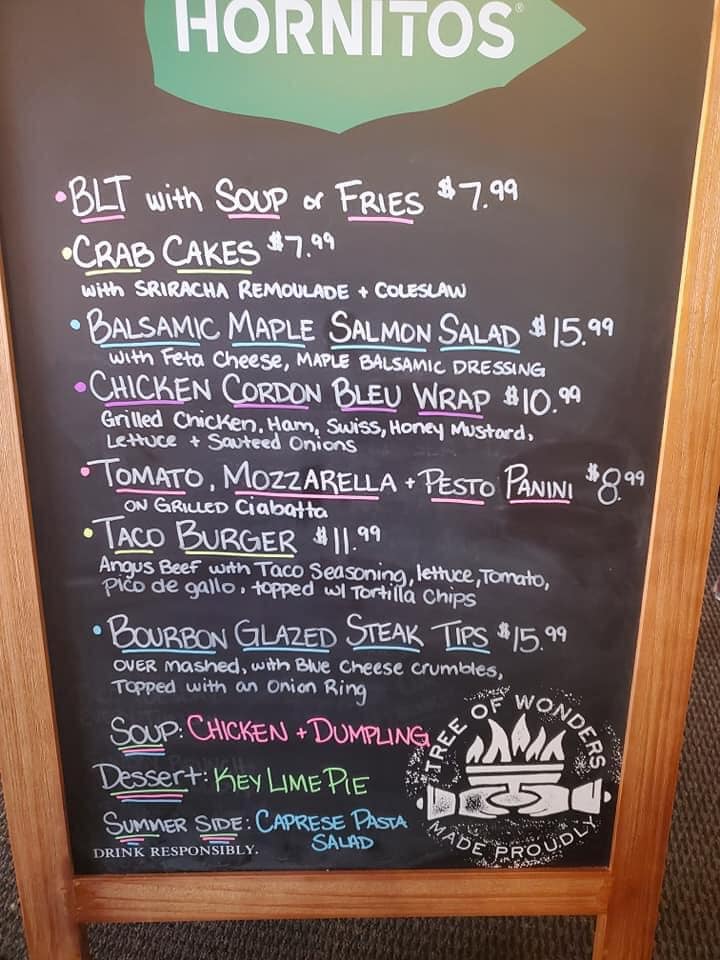 HORNITOS®
• BLT with SOUP or FRIES $7.99
• CRAB CAKES $7.99
with SRIRACHA REMOULADE + COLESLAW
• BALSAMIC MAPLE SALMON SALAD $15.99
with Feta Cheese, MAPLE BALSAMIC DRESSING
• CHICKEN CORDON BLEU WRAP $10.99
Grilled Chicken, Ham, Swiss, Honey Mustard,
Lettuce + Sauteed Onions
• TOMATO, MOZZARELLA + PESTO PANINI $8.99
ON GRILLED Ciabatta
• TACO BURGER $11.99
Angus Beef with Taco Seasoning, lettuce, Tomato,
Pico de gallo, topped w/ Tortilla Chips
• BOURBON GLAZED STEAK TIPS $15.99
OVER mashed, with Blue Cheese crumbles,
Topped with an Onion Ring
SOUP: CHICKEN + DUMPLING
Dessert: KEY LIME PIE
SUMMER SIDE: CAPRESE PASTA
SALAD
DRINK RESPONSIBLY.
TREE OF WONDERS
MADE PROUDLY